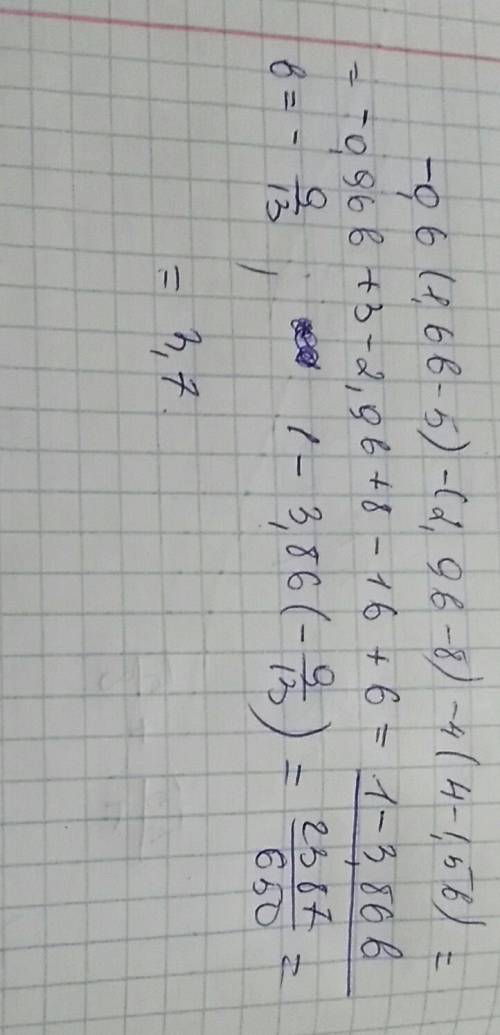 -0,6(1,6b-5)-(2,9b-8)-4(4-1,5b)=
=-0,96b+3-2,9b+8-16+6=1-3,86b
b=-9/13; 1-3,86(-9/13)=2387/650=
=3,7